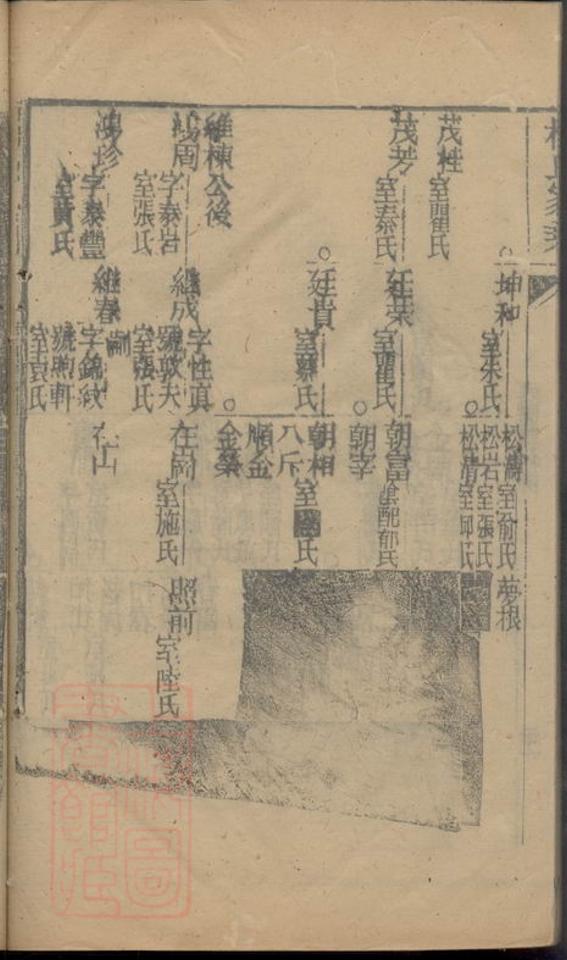 茂桂 室瞿氏
茂芳 室秦氏
維棟公後
鳴周 字泰岩 室張氏
鴻珍 字泰豐 室黄氏
坤和 室朱氏
廷荣 室瞿氏
廷貴 室蔡氏
継成 字性真 號敦夫 室張氏
継春 嗣 字錦紋 號煦軒 室袁氏
松濤 室俞氏
松岩 室張氏
松清
朝富 配郁氏
朝宰
朝相
八斤 室 氏
順金
金榮
在崗 室施氏
在山
夢根
照前 室陸氏